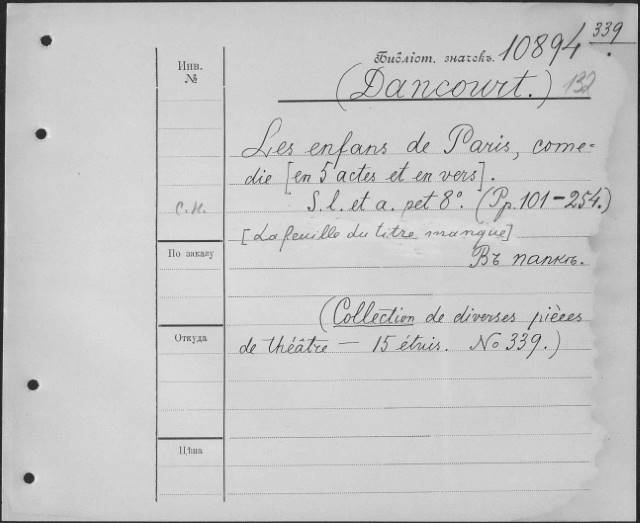 339
Инв.
№
Библіот. значекъ. 10894
(Dancourt.) 132
Les enfans de Paris, come=
die [en 5 actes et en vers].
С.Н.
S. l. et a. pet 8°. (Pp. 101-254.)
[La feuille du titre manque]
По заказу
Въ папкѣ.
(Collection de diverses pièces
Откуда
de théâtre — 15 étuis. No 339.)
Цѣна